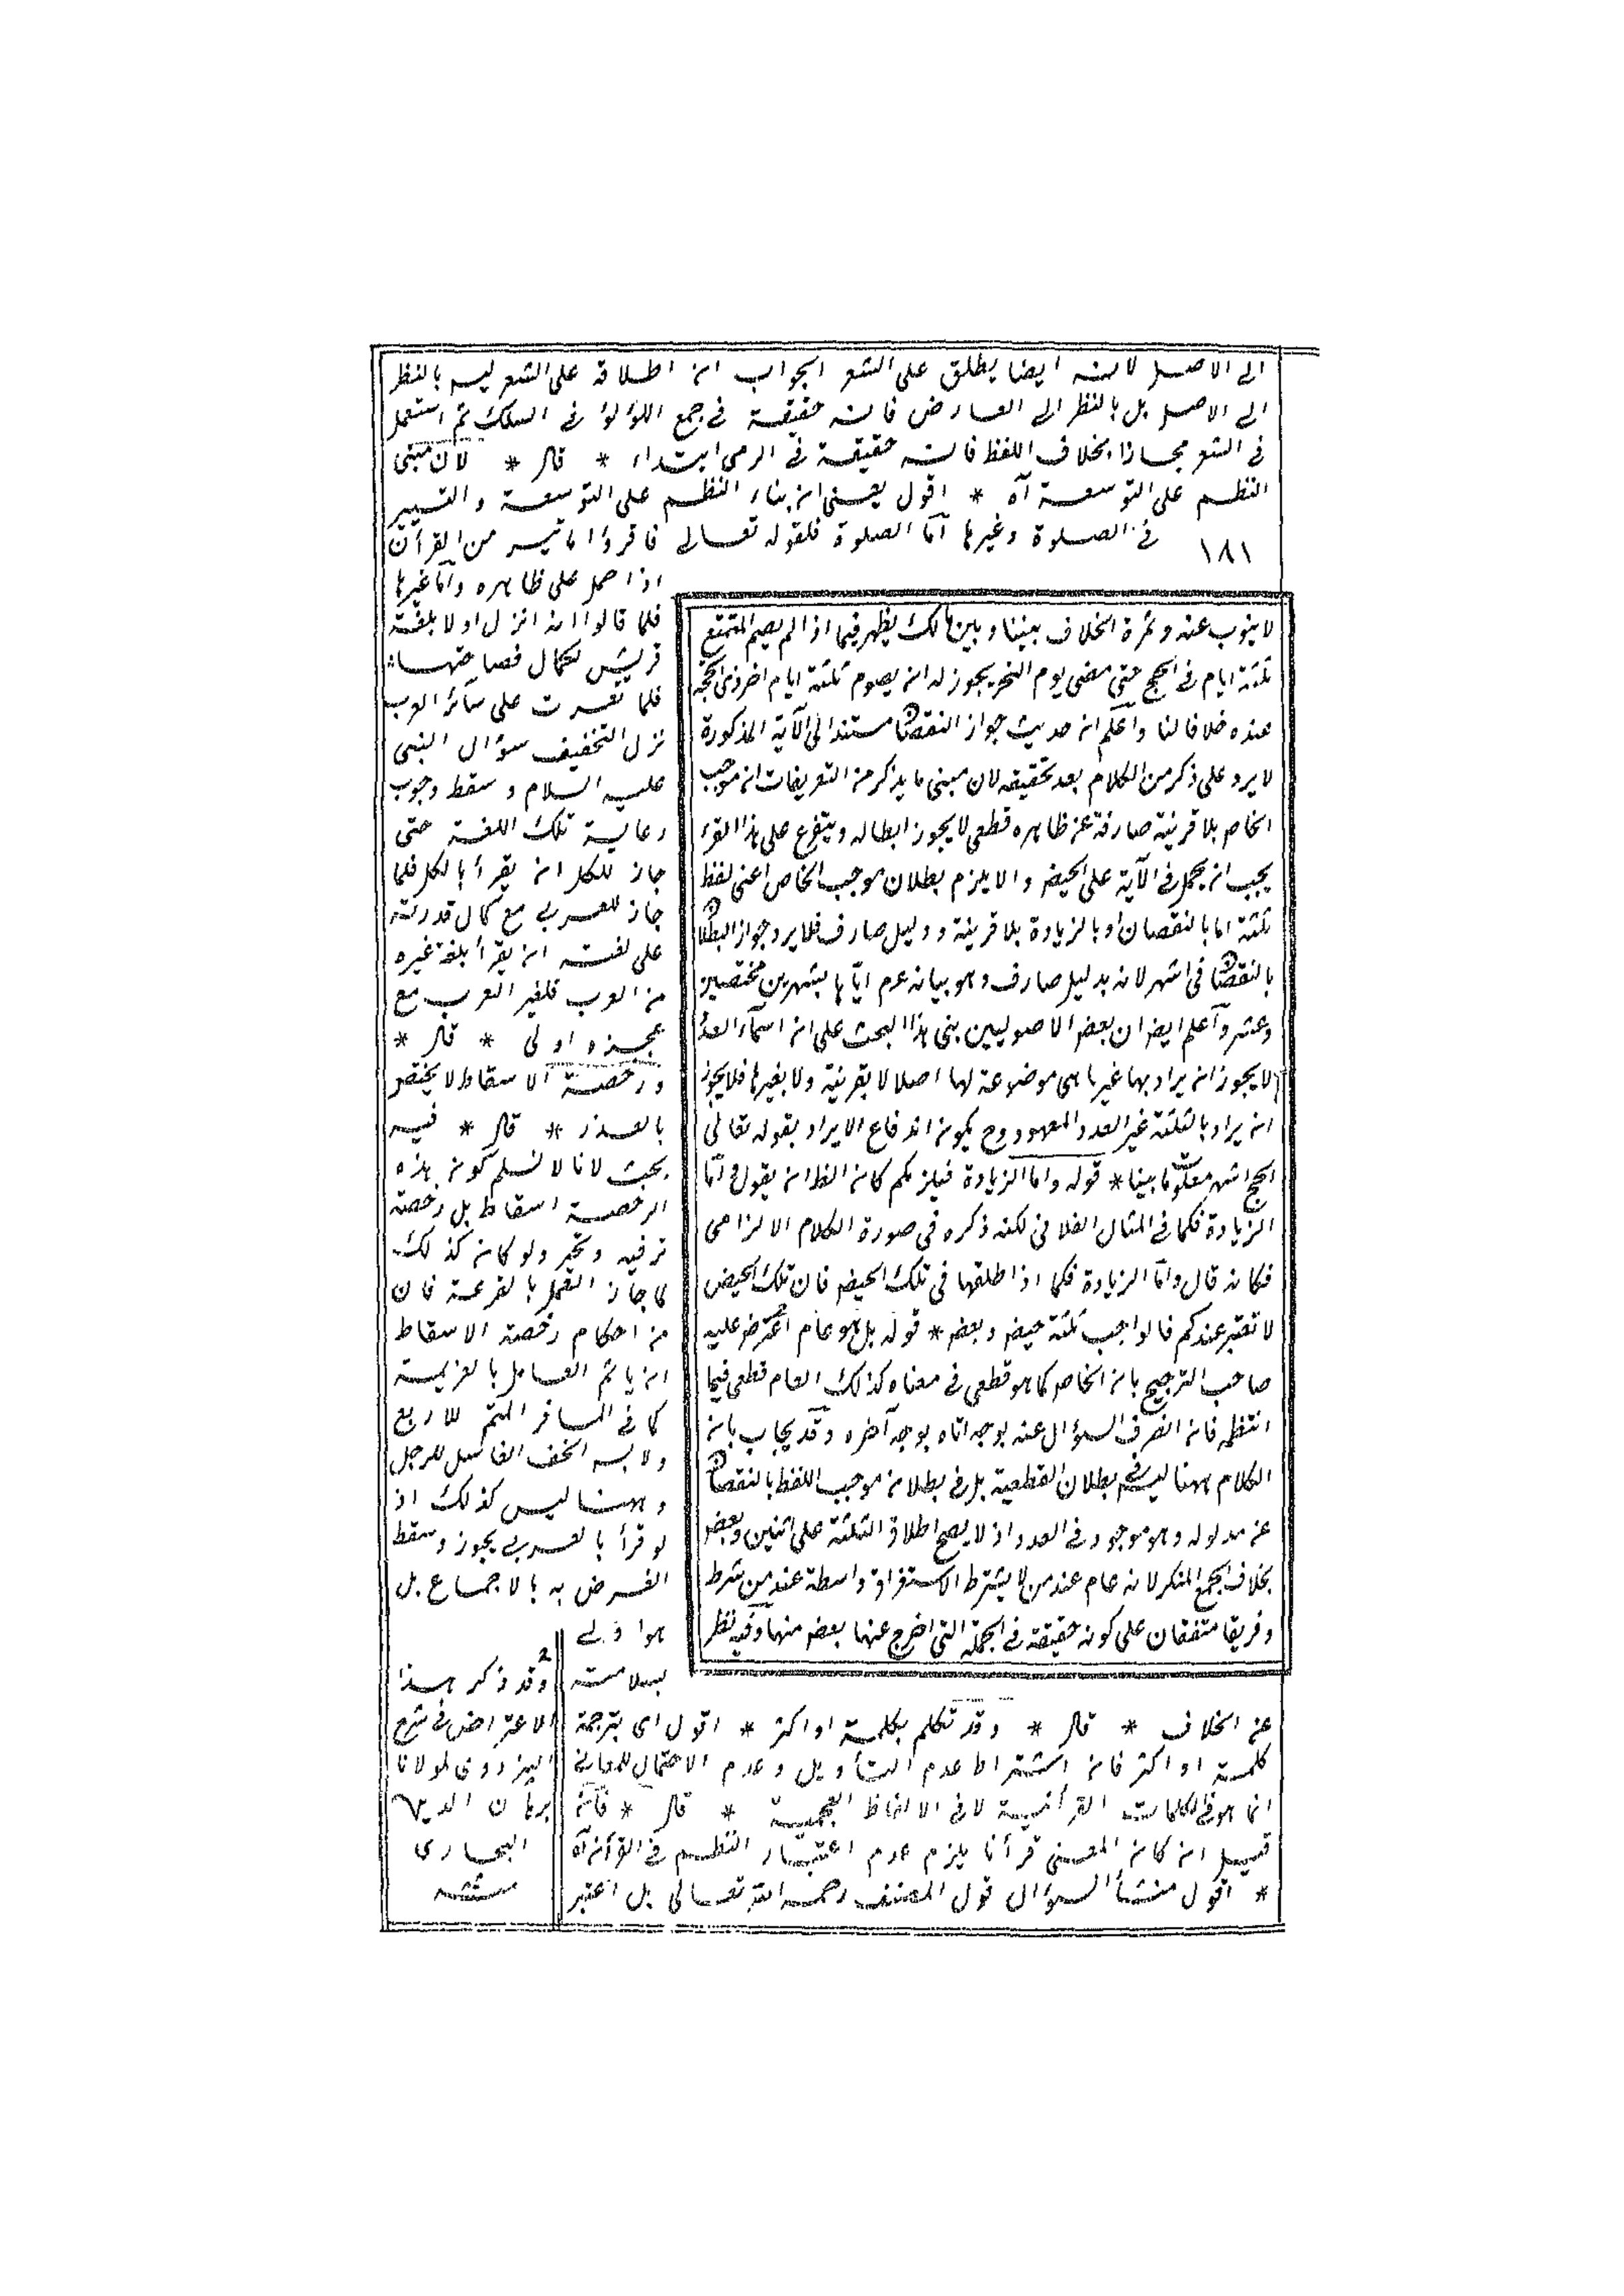 الى الاصل لانه ايضا يطلق على الشعر الجواب ان اطلاقه على الشعر ليس بالنظر
الى الاصل بل بالنظر الى العارض فانه حقيقة في جمع اللؤلؤ في السلك ثم استعمل
في الشعر مجازا بخلاف اللفظ فانه حقيقة في الرمى ابتداء * قال * لان مبنى
النظم على التوسعة آه * اقول يعنى ان بناء النظم على التوسعة والتيسير
في الصلوة وغيرها اما الصلوة فلقوله تعالى فاقرؤا ما تيسر من القرآن
١٨١
اذا حمل على ظاهره واما غيرها
فلما قالوا انه انزل اولا بلغة
قريش لكمال فصاحتها
فلما تعسرت على سائر العرب
نزل التخفيف بسؤال النبى
عليه السلام وسقط وجوب
رعاية تلك اللغة حتى
جاز للكل ان يقرأ بالكل فلما
جاز للعربي مع كمال قدرته
على لغته ان يقرأ بلغة غيره
من العرب فلغير العرب مع
عجزه اولى * قال *
ورخصة الاسقاط لا يختص
بالعذر * قال * فيه
بحث لانا لا نسلم كون هذه
الرخصة اسقاط بل رخصة
ترفيه وتخير ولو كان كذلك
لما جاز العمل بالعزيمة فان
من احكام رخصة الاسقاط
ان ياثم العامل بالعزيمة
كما في المسافر المتم للاربع
ولابس الخف الغاسل للرجل
وههنا ليس كذلك اذ
لو قرأ بالعربي يجوز وسقط
الفرض به بالاجماع بل
هو اولى
بسلامته
عن الخلاف * قال * وقد تكلم بكلمة او اكثر * اقول اى بترجمة
كلمة او اكثر فان اشتراط عدم التأويل وعدم الاحتمال للمعانى
انما هو في الكلمات القرآنية لا في الالفاظ العجمية * قال * فان
قيل ان كان المعنى قرآنا يلزم عدم اعتبار النظم في القرآن آه
* اقول منشأ السؤال قول المصنف رحمه الله تعالى بل اعتبر
وقد ذكر هذا
الاعتراض في شرح
البزدوى لمولانا
برهان الدين
البخارى
لا ينوب عنه وثمرة الخلاف بيننا وبين مالك يظهر فيما اذا لم يصم المتمتع
ثلثة ايام في الحج حتى مضى يوم النحر يجوز له ان يصوم ثلثة ايام اخر ذى الحجة
عنده خلافا لنا واعلم ان حديث جواز النقصان مستندا الى الآية المذكورة
لا يرد على ذكر من الكلام بعد تحقيقه لان مبنى ما يذكر من التعريفات ان موجب
الخاص بلا قرينة صارفة عن ظاهره قطعى لا يجوز ابطاله ويتفرع على هذا القرء
يجب ان يحمل في الآية على الحيض والا يلزم بطلان موجب الخاص اعنى لفظ
ثلثة اما بالنقصان او بالزيادة بلا قرينة ودليل صارف فلا يرد جواز البطلان
بالنقصان في اشهر لانه بدليل صارف وهو بيانه عم اياها بشهرين مختصين
وعشر واعلم ايضا ان بعض الاصوليين بنى هذا البحث على ان اسماء العدد
لا يجوز ان يراد بها غير ما هى موضوعة لها اصلا لا بقرينة ولا بغيرها فلا يجوز
ان يراد بالثلثة غير العدد المعهود وح يكون اندفاع الايراد بقوله تعالى
الحج اشهر معلومات بينا * قوله واما الزيادة فيلزمكم كان الظ ان يقول واما
الزيادة فكما في المثال الفلانى لكنه ذكره في صورة الكلام الالزامى
فكانه قال واما الزيادة فكما اذا طلقها في تلك الحيض فان تلك الحيض
لا تعتبر عندكم فالواجب ثلثة حيض وبعض * قوله بل هو عام اعترض عليه
صاحب الترجيح بان الخاص كما هو قطعى في معناه كذلك العام قطعى فيما
انتظمه فان انصرف السؤال عنه بوجه اتاه بوجه آخر وقد يجاب بان
الكلام ههنا ليس في بطلان القطعية بل في بطلان موجب اللفظ بالنقصان
عن مدلوله وهو موجود في العدد اذ لا يصح اطلاق الثلثة على اثنين وبعض
بخلاف الجمع المنكر لانه عام عند من لا يشترط الاستغراق واسطة عند من شرط
وفريقا متفقان على كونه حقيقة في الجملة التى اخرج عنها بعض منها وفيه نظر